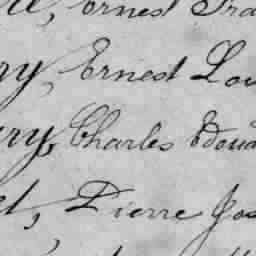 Ernest
ry, Ernest Lou
ry, Charles Edoua
et, Pierre Jos